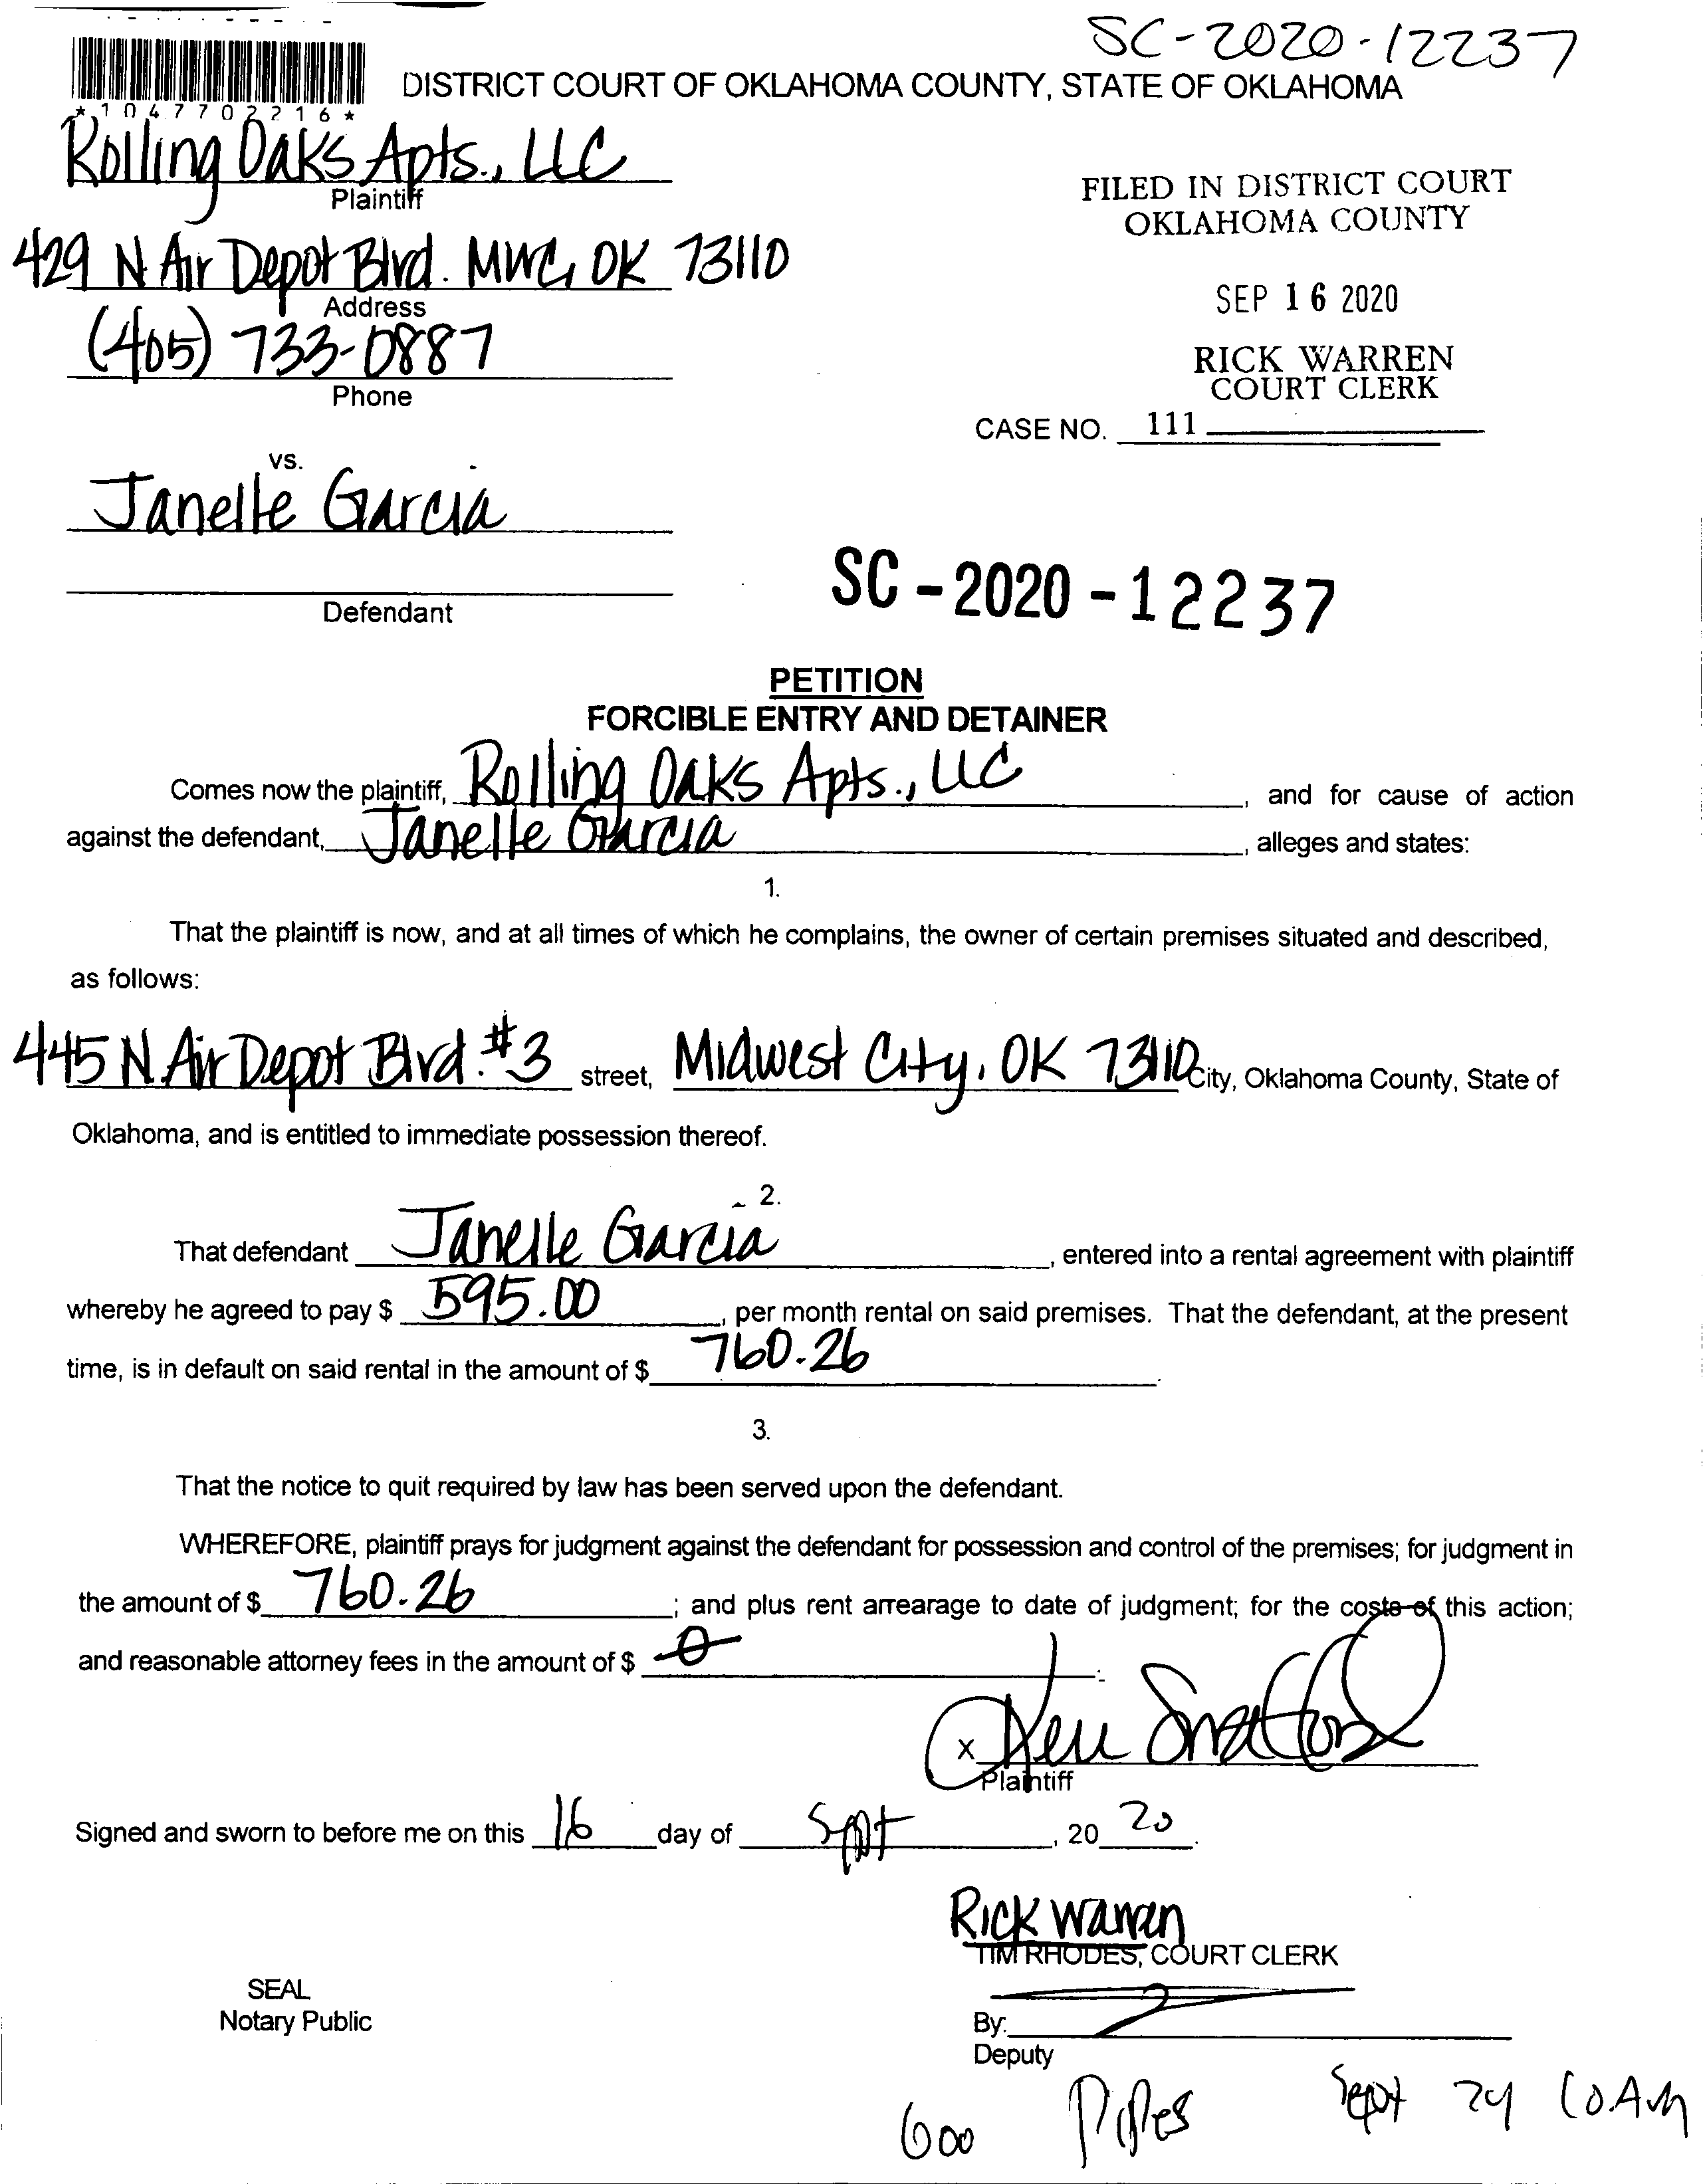 SC-2020-12237
DISTRICT COURT OF OKLAHOMA COUNTY, STATE OF OKLAHOMA
*1047702216*
Rolling Oaks Apts., LLC
Plaintiff
429 N Air Depot Blvd. MWC, OK 73110
Address
(405) 733-0887
Phone
FILED IN DISTRICT COURT
OKLAHOMA COUNTY
SEP 16 2020
RICK WARREN
COURT CLERK
CASE NO. 111
vs.
Janelle Garcia
Defendant
SC-2020-12237
PETITION
FORCIBLE ENTRY AND DETAINER
Comes now the plaintiff, Rolling Oaks Apts., LLC, and for cause of action
against the defendant, Janelle Garcia, alleges and states:
1.
That the plaintiff is now, and at all times of which he complains, the owner of certain premises situated and described,
as follows:
445 N. Air Depot Blvd. #3 street, Midwest City, OK 73110 City, Oklahoma County, State of
Oklahoma, and is entitled to immediate possession thereof.
2.
That defendant Janelle Garcia, entered into a rental agreement with plaintiff
whereby he agreed to pay $ 595.00, per month rental on said premises. That the defendant, at the present
time, is in default on said rental in the amount of $ 760.26.
3.
That the notice to quit required by law has been served upon the defendant.
WHEREFORE, plaintiff prays for judgment against the defendant for possession and control of the premises; for judgment in
the amount of $ 760.26; and plus rent arrearage to date of judgment; for the costs of this action;
and reasonable attorney fees in the amount of $ 0.
x
Plaintiff
Signed and sworn to before me on this 16 day of Sept, 20 20.
Rick Warren
TIM RHODES, COURT CLERK
SEAL
Notary Public
By:
Deputy
600 Pipes Sept 24 10 AM